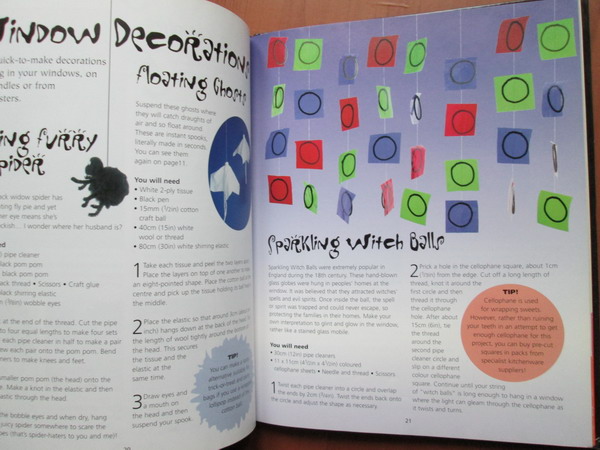 Window Decorations
quick-to-make decorations
g in your windows, on
ndles or from
sters.
ng furry
pider
ack widow spider has
ting fly pie and yet
er eye means she's
ckish... I wonder where her husband is?
ed
pipe cleaner
ack pom pom
black pom pom
thread • Scissors • Craft glue
ack shirring elastic
wobble eyes
at the end of the thread. Cut the pipe
to four equal lengths to make four sets
each pipe cleaner in half to make a pair
ue each pair onto the pom pom. Bend
ners to make knees and feet.
smaller pom pom (the head) onto the
Make a knot in the elastic and then
lastic through the head.
he bobble eyes and when dry, hang
uicy spider somewhere to scare the
pes (that's spider-haters to you and me)!
20
floating Ghosts
Suspend these ghosts where
they will catch draughts of
air and so float around.
These are instant spooks,
literally made in seconds.
You can see them
again on page11.
You will need
• White 2-ply tissue
• Black pen
• 15mm (½in) cotton
craft ball
• 40cm (15in) white
wool or thread
• 80cm (30in) white shirring elastic
1 Take each tissue and peel the two layers apart.
Place the layers on top of one another to make
an eight-pointed shape. Place the cotton ball in the
centre and pick up the tissue holding the ball from
the middle.
2 Place the elastic so that around
inch) hangs down at the back of the
of wool tightly around the bottom of
the head. This secures
the tissue and the
elastic at the
same time.
3 Draw eyes and
a mouth on
the head and then
suspend your spook.
TIP!
You can make
alternative
trick-or-treat
bags if you use
lollipop instead of the
cotton ball.
Sparkling Witch Balls
Sparkling Witch Balls were extremely popular in
England during the 18th century. These hand-blown
glass globes were hung in peoples' homes at the
window. It was believed that they attracted witches'
spells and evil spirits. Once inside the ball, the spell
or spirit was trapped and could never escape, so
protecting the families in their homes. Make your
own interpretation to glint and glow in the window,
rather like a stained glass mobile.
You will need
• 30cm (12in) pipe cleaners
• 11 x 11cm (4½in x 4½in) coloured
cellophane sheets • Needle and thread • Scissors
1 Twist each pipe cleaner into a circle and overlap
the ends by 2cm (¾in). Twist the ends back onto
the circle and adjust the shape as necessary.
2 Prick a hole in the cellophane square, about 1cm
(½in) from the edge. Cut off a long length of
thread, knot it around the
first circle and then
thread it through
the cellophane
hole. After about
15cm (6in), tie
the thread
around the
second pipe
cleaner circle and
slip on a different
colour cellophane
square. Continue until your string
of "witch balls" is long enough to hang in a window
where the light can gleam through the cellophane as
it twists and turns.
TIP!
Cellophane is used
for wrapping sweets.
However, rather than ruining
your teeth in an attempt to get
enough cellophane for this
project, you can buy pre-cut
squares in packs from
specialist kitchenware
suppliers!
21